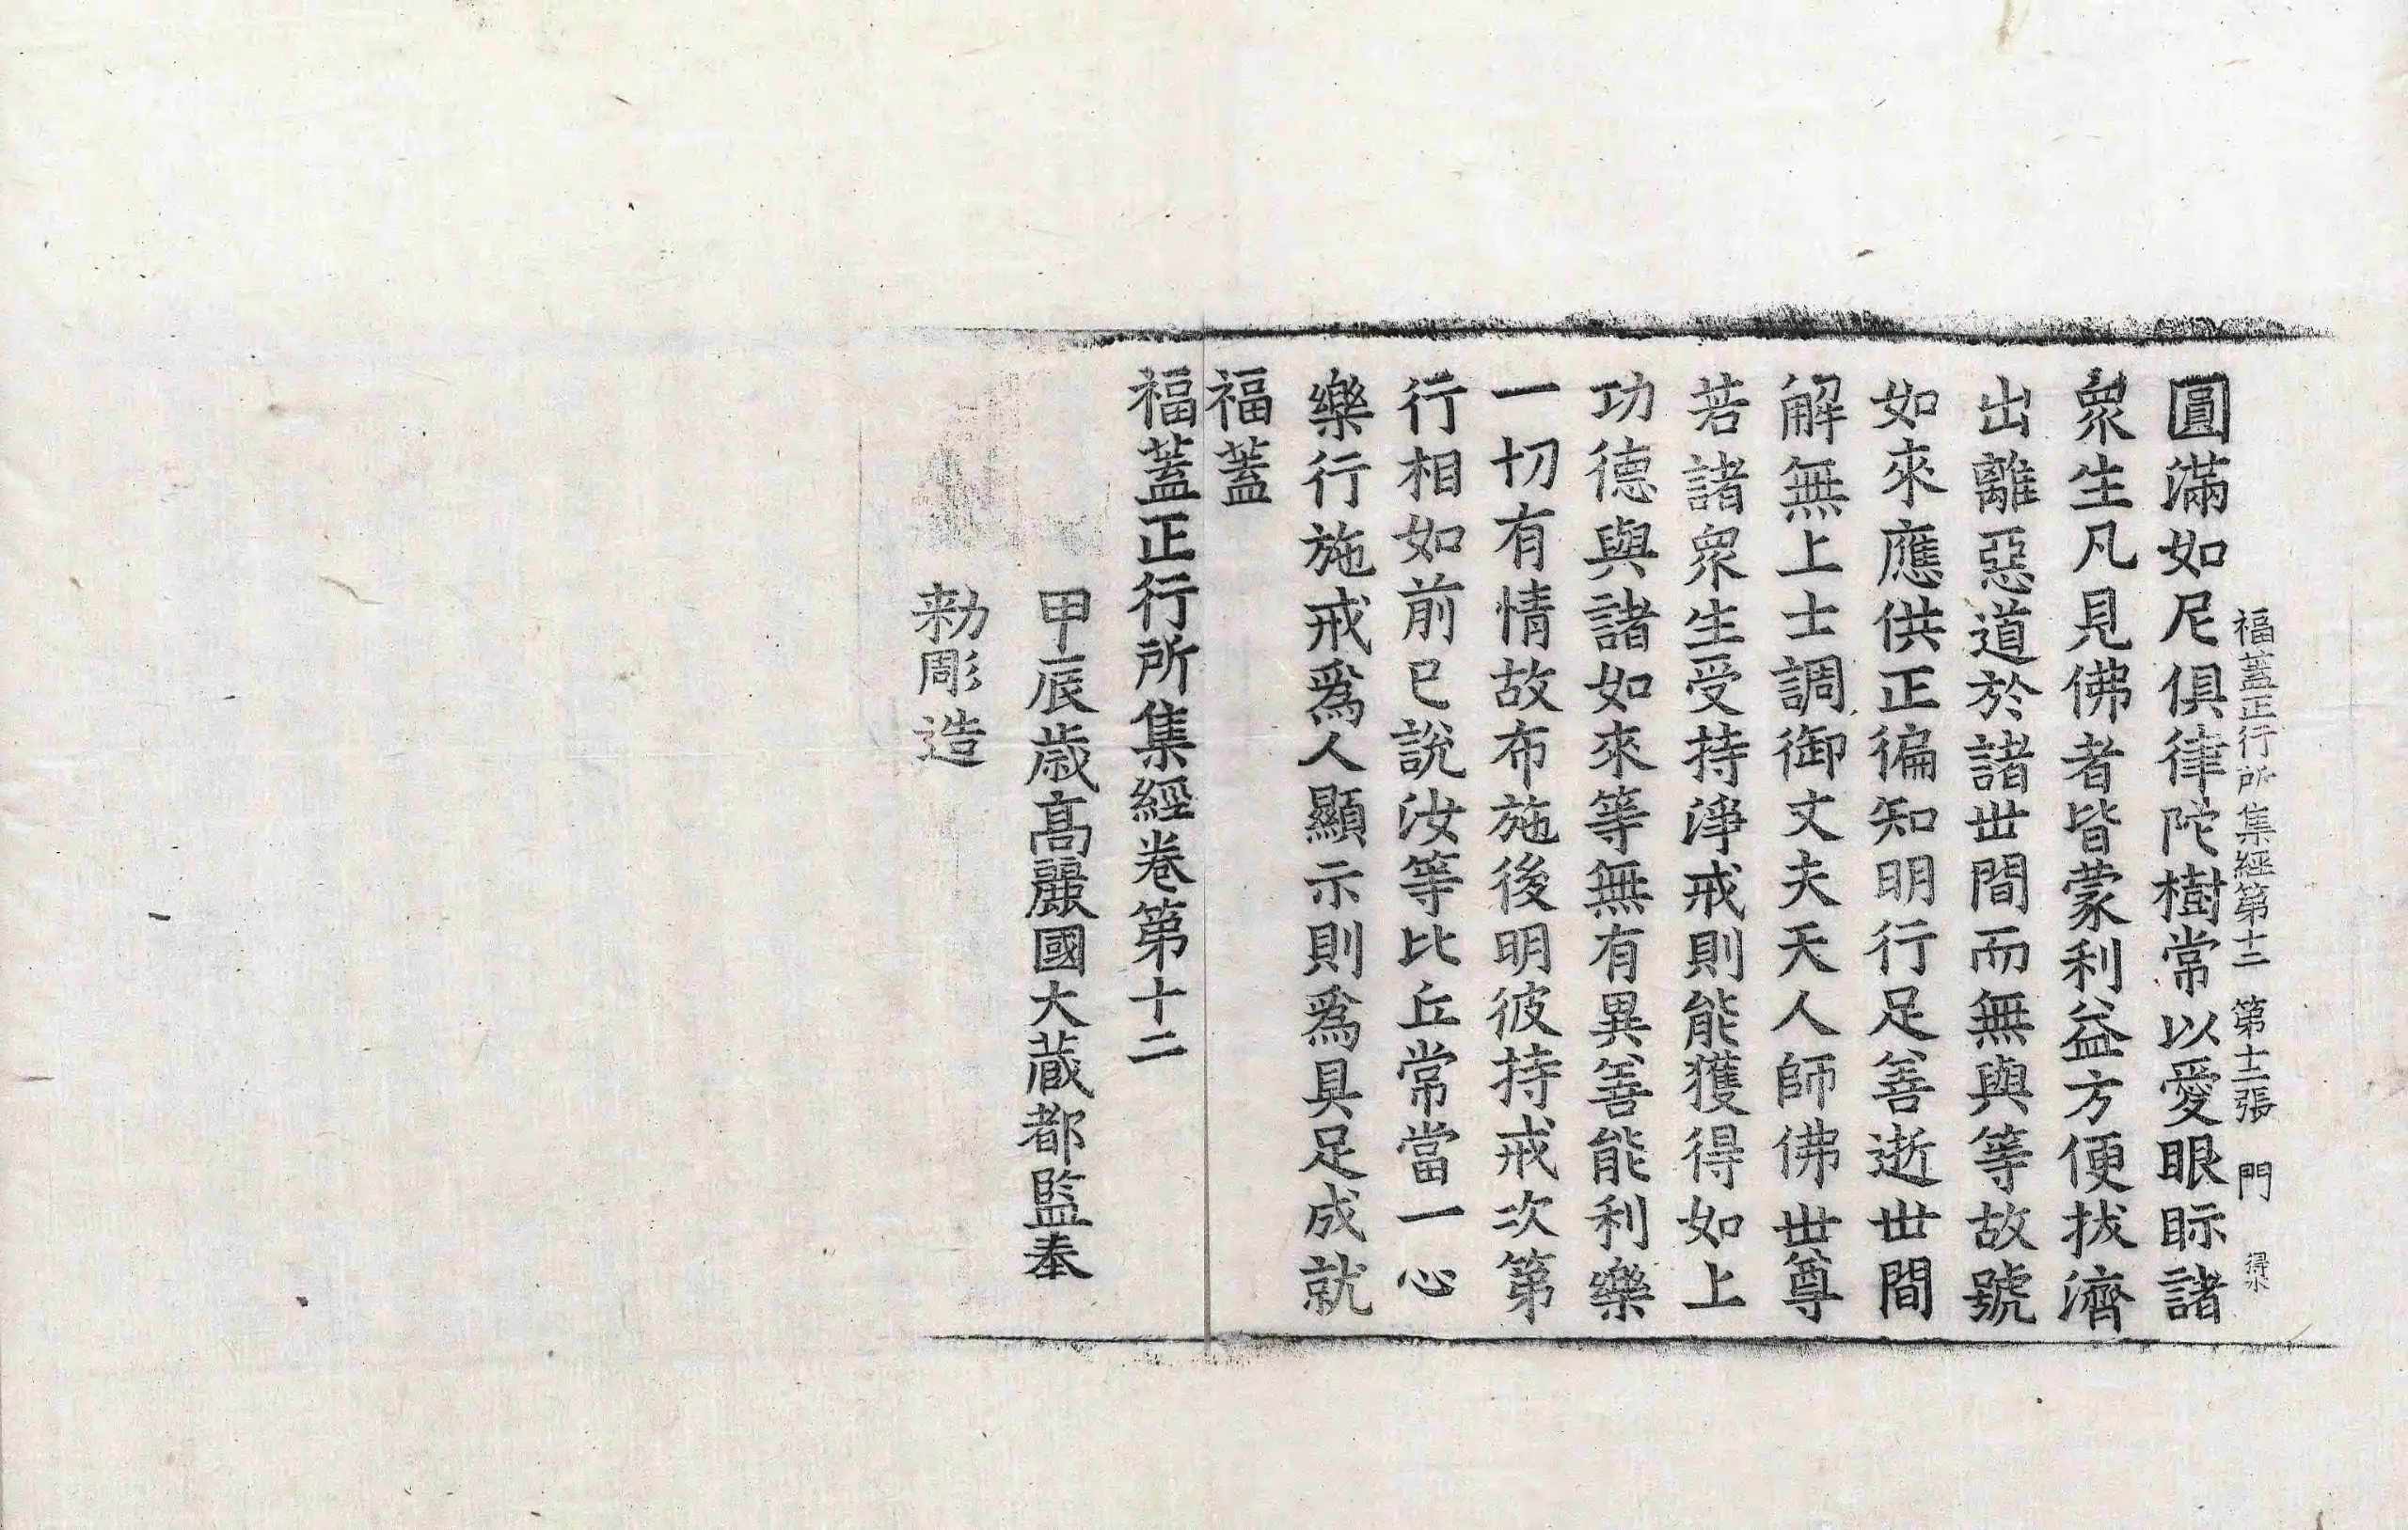 福蓋正行所集經第十二 第十二張 門 得水
圓滿如尼俱律陀樹常以愛眼眎諸
衆生凡見佛者皆蒙利益方便拔濟
出離惡道於諸世間而無與等故號
如來應供正徧知明行足善逝世間
解無上士調御丈夫天人師佛世尊
若諸衆生受持淨戒則能獲得如上
功德與諸如來等無有異善能利樂
一切有情故布施後明彼持戒次第
行相如前已說汝等比丘常當一心
樂行施戒爲人顯示則爲具足成就
福蓋
福蓋正行所集經卷第十二
甲辰歳高麗國大藏都監奉
勑彫造